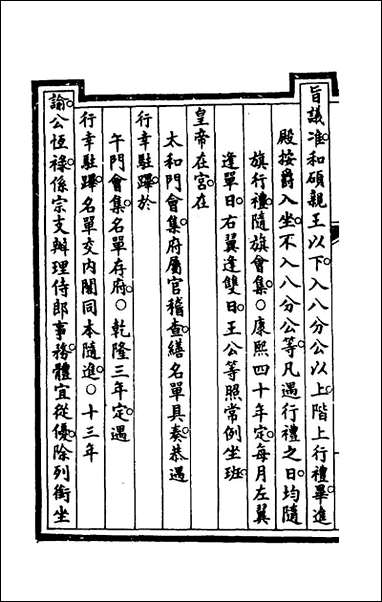 旨議准和碩親王以下入八分公以上階上行禮畢進
殿按爵入坐不入八分公等凡遇行禮之日均隨
旗行禮隨旗會集○康熙四十年定每月左翼
逢單日右翼逢雙日王公等照常例坐班
皇帝在宮在
太和門會集府屬官稽查繕名單具奏恭遇
行幸駐蹕於
午門會集名單存府○乾隆三年定遇
行幸駐蹕名單交內閣同本隨進○十三年
諭公恆祿係宗支辦理侍郎事務體宜從優除列銜坐